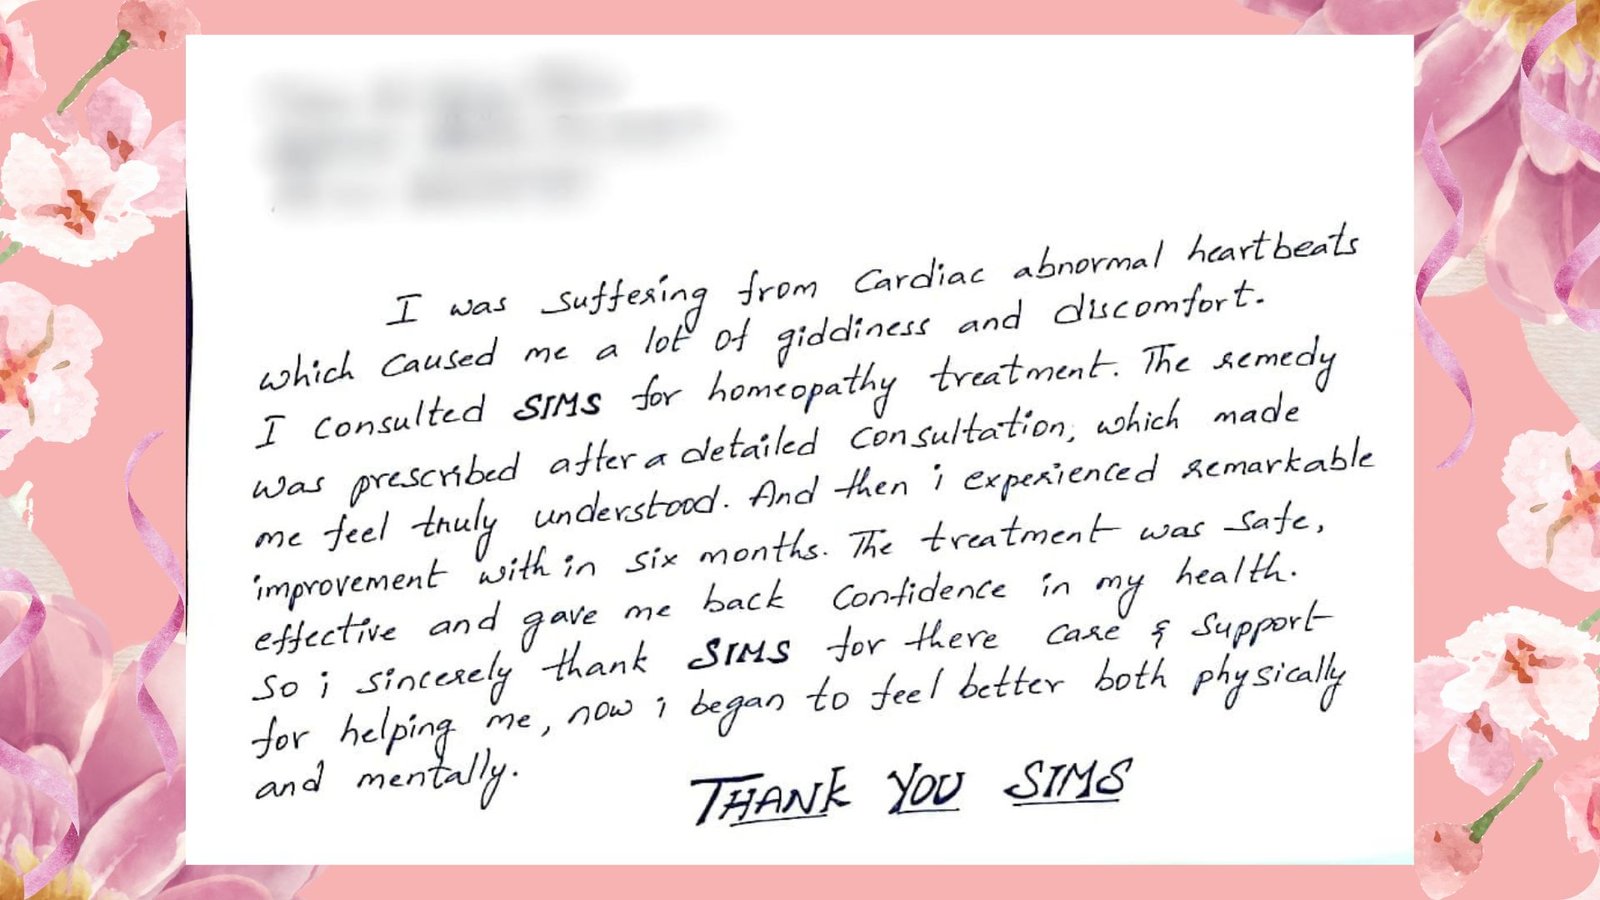 I was suffering from Cardiac abnormal heartbeats
which caused me a lot of giddiness and discomfort.
I consulted SIMS for homeopathy treatment. The remedy
was prescribed after a detailed consultation, which made
me feel truly understood. And then i experienced remarkable
improvement with in six months. The treatment was safe,
effective and gave me back confidence in my health.
So i sincerely thank SIMS for there care & support
for helping me, now i began to feel better both physically
and mentally.
THANK YOU SIMS